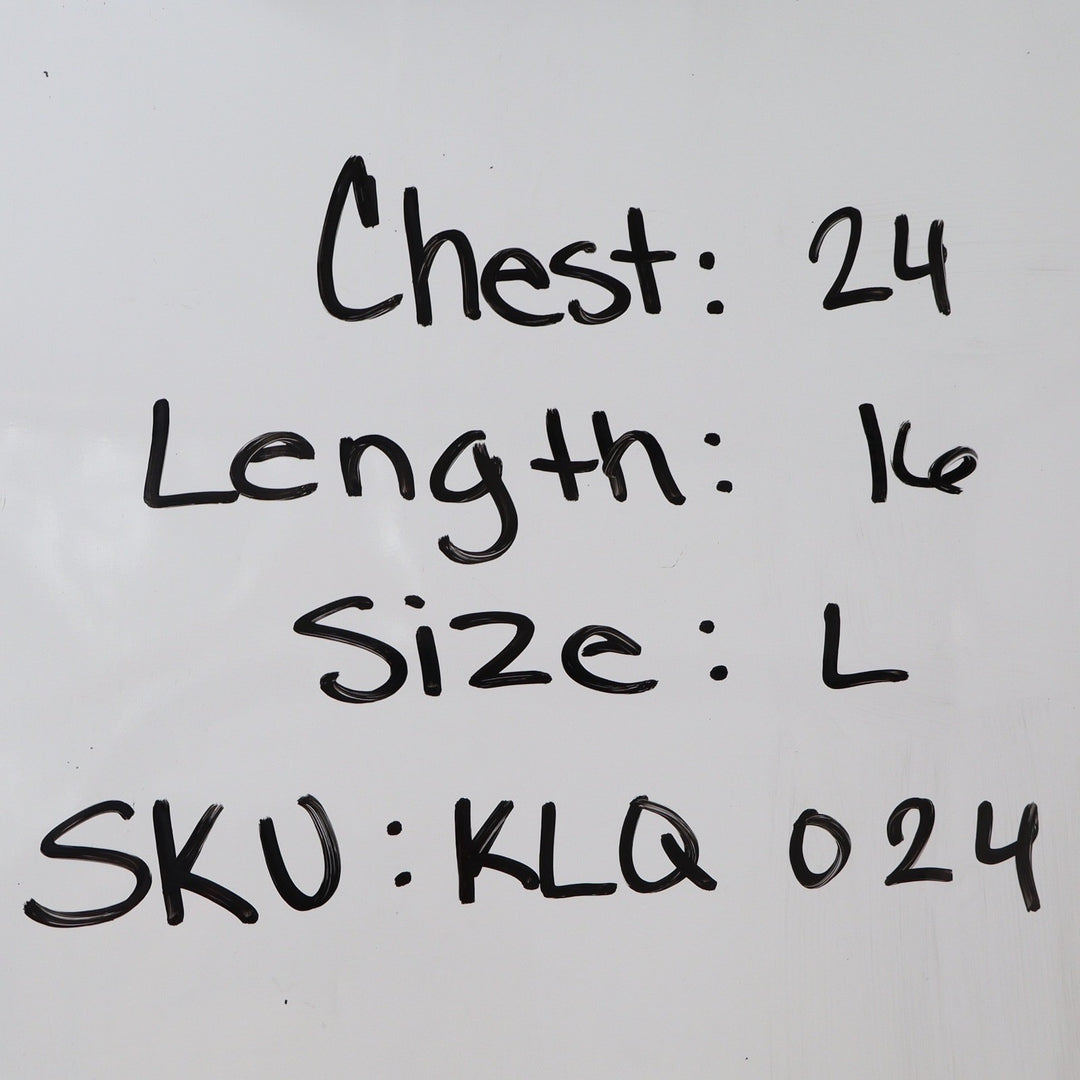 Chest: 24
Length: 16
Size: L
SKU: KLQ 024